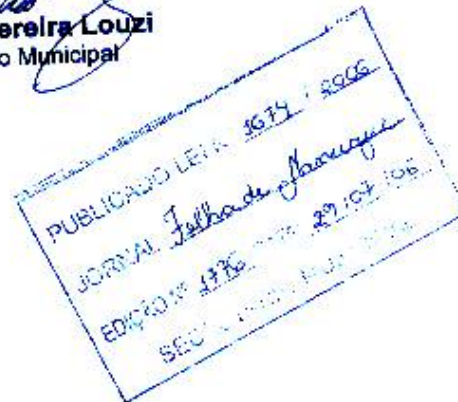 ereira Louzi
o Municipal
PUBLICADO LEI Nº 1674 / 2006
JORNAL Folha de
EDIÇÃO Nº 1776 29/07/06